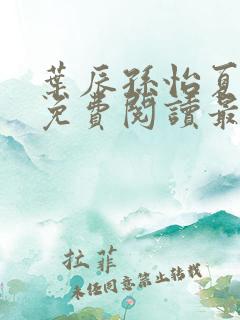 葉辰孫怡夏
免費閱讀最
拉菲
未經同意禁止轉載